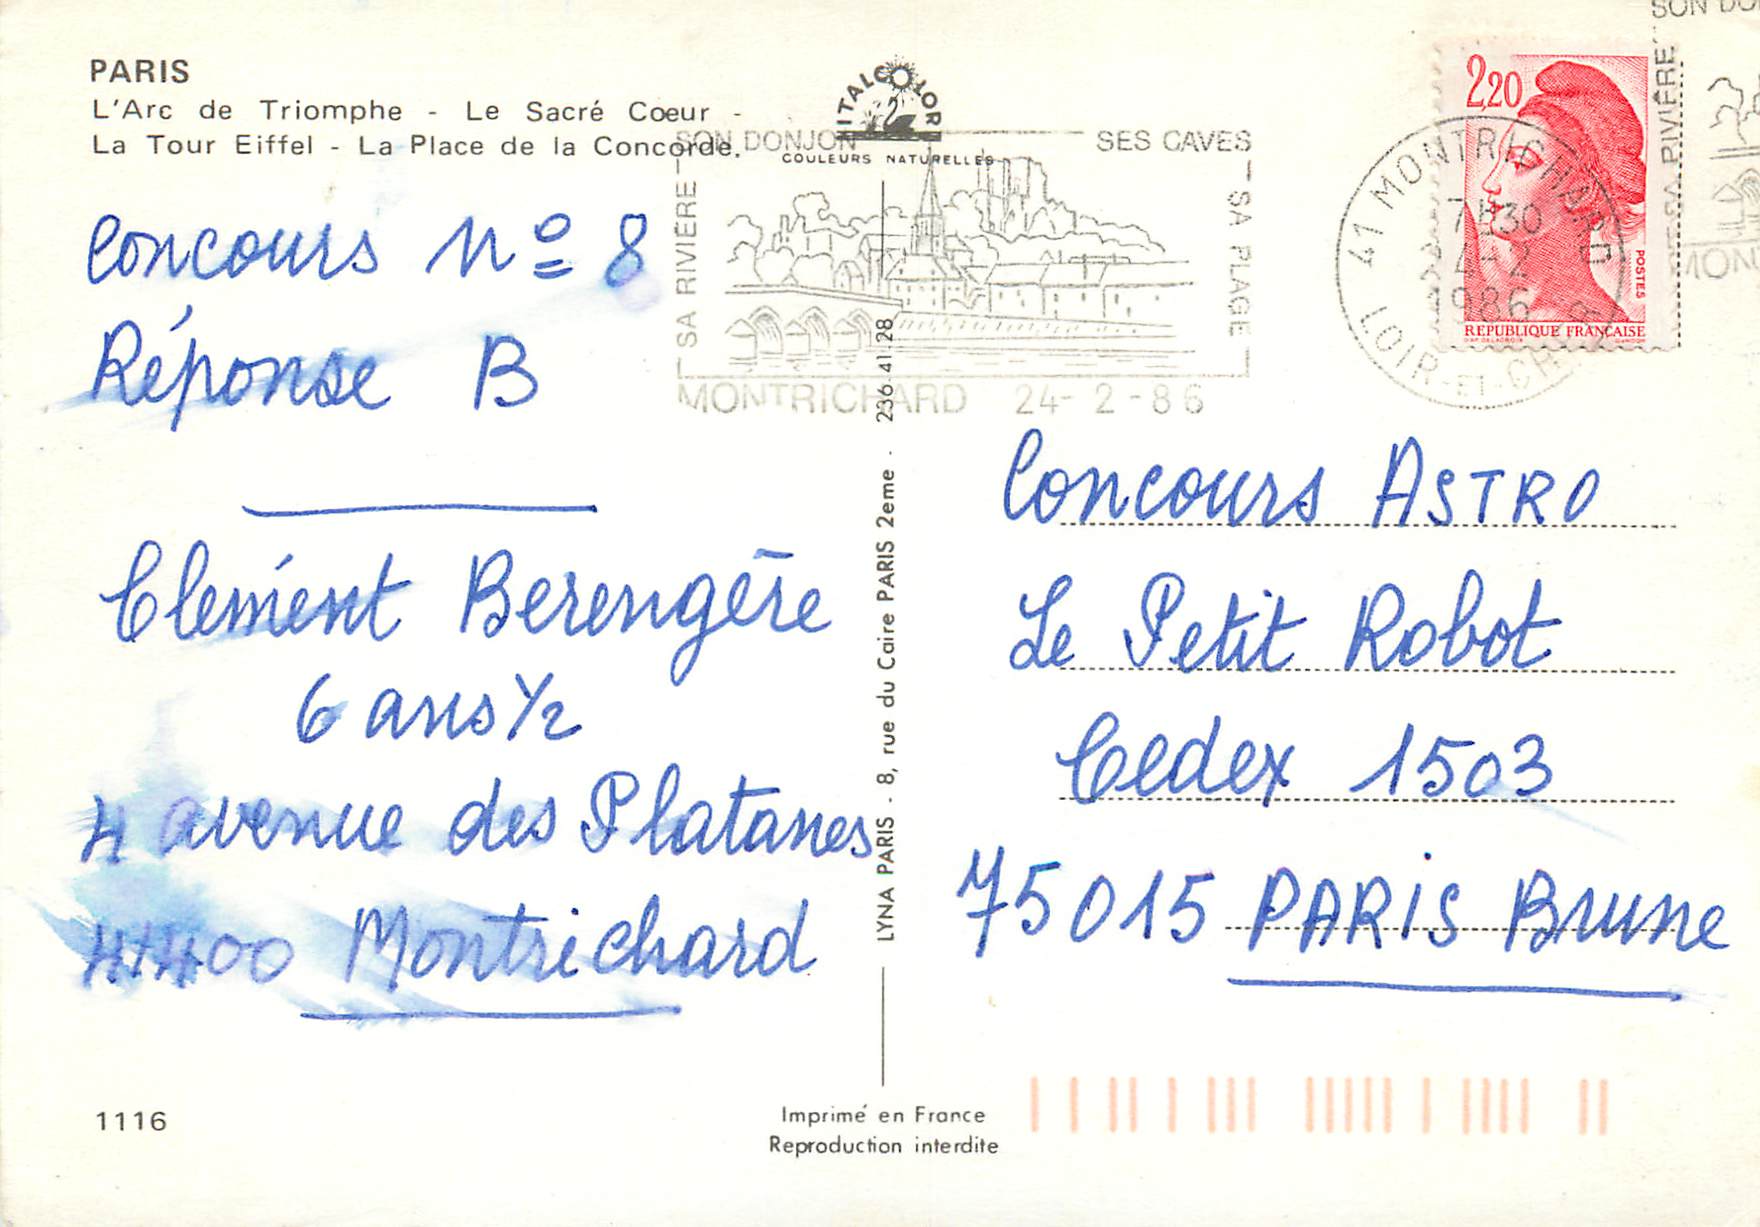 PARIS
L'Arc de Triomphe - Le Sacré Coeur -
La Tour Eiffel - La Place de la Concorde.
ITALCOLOR
COULEURS NATURELLES
SON DONJON
SES CAVES
SA RIVIÈRE
SA PLAGE
MONTRICHARD 24-2-86
2,20
POSTES
REPUBLIQUE FRANÇAISE
41 MONTRICHARD
7H30
4-2
1986
LOIR-ET-CH
SON DO
SA RIVIÈRE
MON
Concours N° 8
Réponse B
Clément Berengère
6 ans 1/2
4 avenue des Platanes
41400 Montrichard
LYNA PARIS - 8, rue du Caire PARIS 2eme - 236-41-28
Concours ASTRO
Le Petit Robot
Cedex 1503
75015 PARIS Brune
1116
Imprimé en France
Reproduction interdite